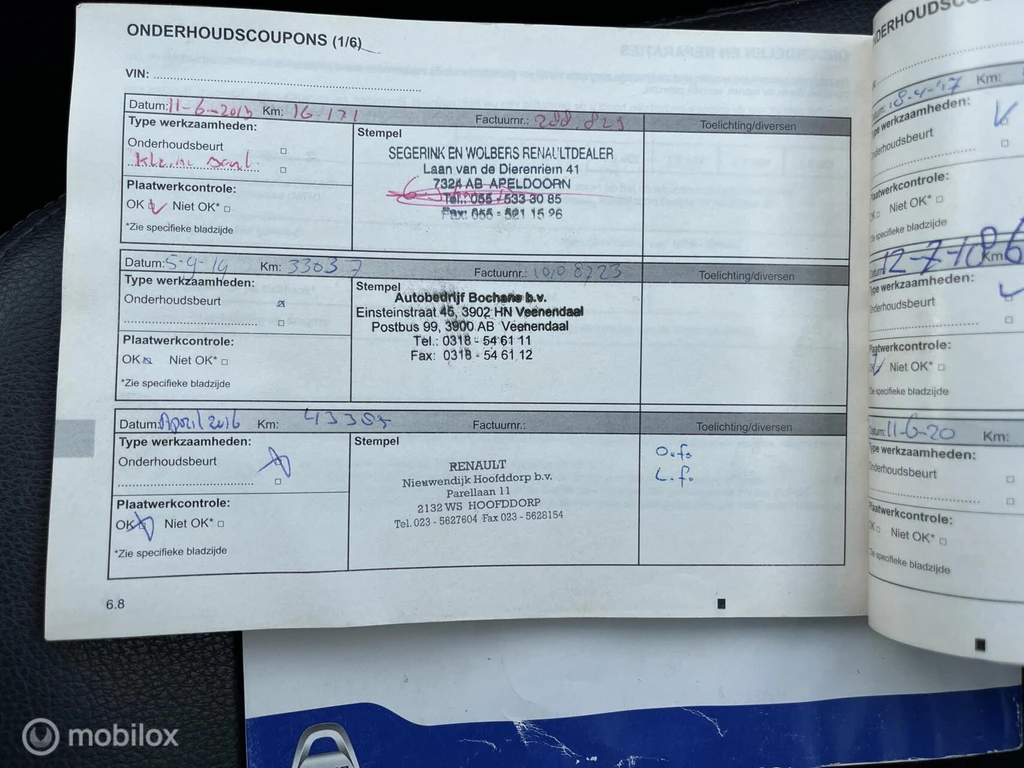 ONDERHOUDSCOUPONS (1/6)
VIN:
Datum: 11-6-2013 Km: 16.171 Factuurnr.: 288.829
Type werkzaamheden:
Onderhoudsbeurt
Stempel
Toelichting/diversen
SEGERINK EN WOLBERS RENAULTDEALER
Laan van de Dierenriem 41
7324 AB APELDOORN
Tel.: 055 - 533 30 85
Fax: 055 - 521 15 26
Plaatwerkcontrole:
OK Niet OK*
*Zie specifieke bladzijde
Datum: 5-9-14 Km: 33037 Factuurnr.: 10108723
Type werkzaamheden:
Onderhoudsbeurt
Stempel
Toelichting/diversen
Autobedrijf Bochane b.v.
Einsteinstraat 45, 3902 HN Veenendaal
Postbus 99, 3900 AB Veenendaal
Tel.: 0318 - 54 61 11
Fax: 0318 - 54 61 12
Plaatwerkcontrole:
OK Niet OK*
*Zie specifieke bladzijde
Datum: April 2016 Km: 43385 Factuurnr.:
Type werkzaamheden:
Onderhoudsbeurt
Stempel
Toelichting/diversen
RENAULT
Nieuwendijk Hoofddorp b.v.
Parellaan 11
2132 WS HOOFDDORP
Tel. 023 - 5627604 Fax 023 - 5628154
O.f.
L.f.
Plaatwerkcontrole:
OK Niet OK*
*Zie specifieke bladzijde
6.8
Datum: 18-4-'17 Km:
Type werkzaamheden:
Onderhoudsbeurt
Plaatwerkcontrole:
Niet OK*
Zie specifieke bladzijde
12-7-18 Km:
Type werkzaamheden:
Onderhoudsbeurt
Plaatwerkcontrole:
Niet OK*
Zie specifieke bladzijde
Datum: 11-6-20 Km:
Type werkzaamheden:
Onderhoudsbeurt
Plaatwerkcontrole:
Niet OK*
Zie specifieke bladzijde
mobilox